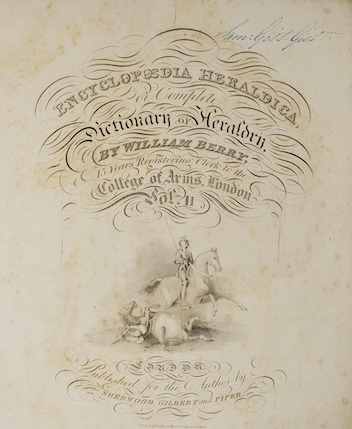 ENCYCLOPŒDIA HERALDICA,
or Complete
Dictionary OF Heraldry,
BY WILLIAM BERRY,
15 Years Registering Clerk to the
College of Arms, London
Vol. II
LONDON
Published for the Author by
SHERWOOD, GILBERT and PIPER.